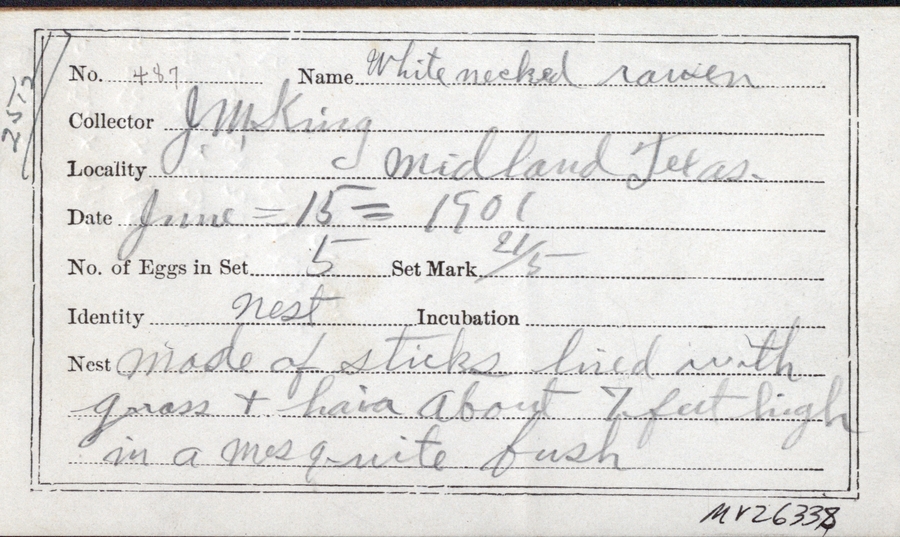 257
No. 487 Name White necked raven
Collector J. M. King
Locality Midland Texas.
Date June = 15 = 1901
No. of Eggs in Set 5 Set Mark 21/5
Identity nest Incubation
Nest made of sticks lined with
grass + hair about 7 feet high
in a mesquite bush
MV26338